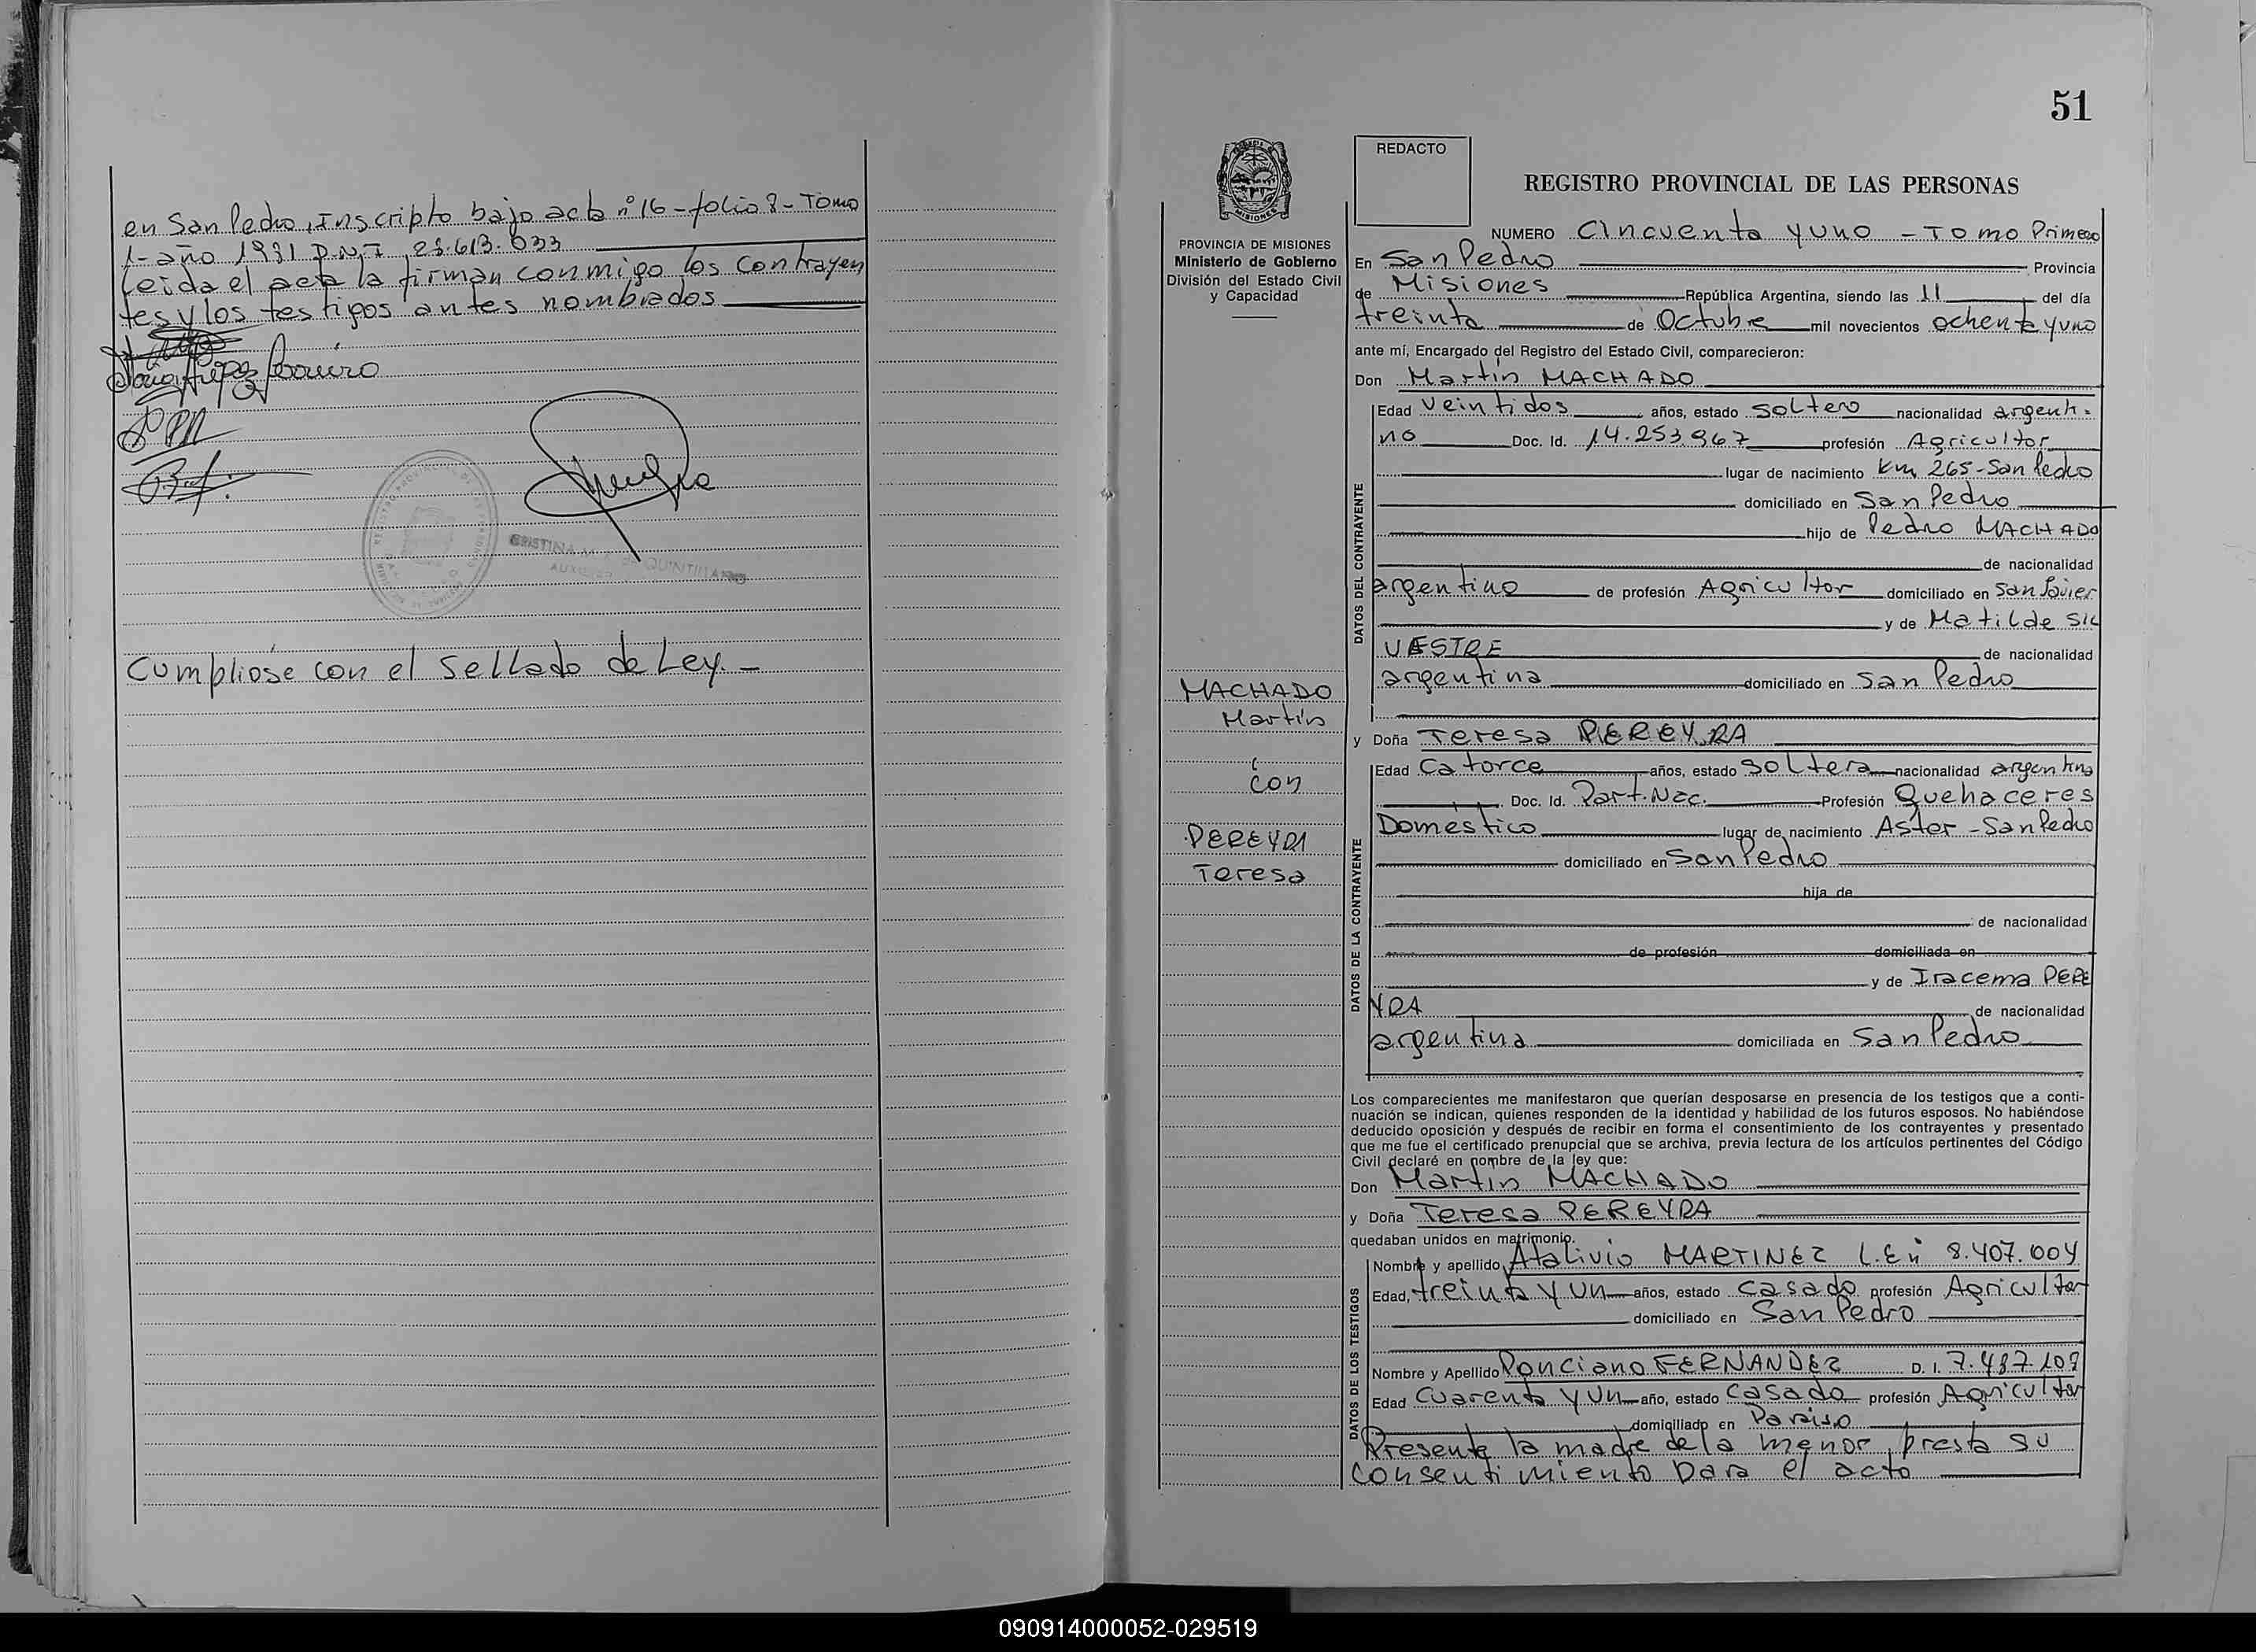 en San Pedro, Inscripto bajo acta nº 16 - folio 8 - Tomo
1 - año 1981 D.N.I.
Leida el acta la firman conmigo los contrayen
tes y los testigos antes nombrados
CRISTINA QUINTILIANO
Cumpliose con el sellado de Ley. -
51
MISIONES
PROVINCIA DE MISIONES
Ministerio de Gobierno
División del Estado Civil
y Capacidad
MACHADO
Martín
con
PEREYRA
Teresa
REDACTO
REGISTRO PROVINCIAL DE LAS PERSONAS
NUMERO Cincuenta y uno - Tomo Primero
En San Pedro Provincia
de Misiones República Argentina, siendo las 11 del día
treinta de Octubre mil novecientos ochenta y uno
ante mí, Encargado del Registro del Estado Civil, comparecieron:
Don Martín MACHADO
DATOS DEL CONTRAYENTE
Edad Veintidos años, estado soltero nacionalidad argenti-
no Doc. Id. 14.253.967 profesión Agricultor
lugar de nacimiento Km 265 - San Pedro
domiciliado en San Pedro
hijo de Pedro MACHADO
de nacionalidad
argentino de profesión Agricultor domiciliado en San Javier
y de Matilde SIL
VESTRE de nacionalidad
argentina domiciliado en San Pedro
y Doña Teresa PEREYRA
DATOS DE LA CONTRAYENTE
Edad Catorce años, estado soltera nacionalidad argentina
Doc. Id. Part. Nac. Profesión Quehaceres
Domestico lugar de nacimiento Aster - San Pedro
domiciliado en San Pedro
hija de
de nacionalidad
de profesión domiciliada en
y de Iracema PERE
YRA de nacionalidad
argentina domiciliada en San Pedro
Los comparecientes me manifestaron que querían desposarse en presencia de los testigos que a conti-
nuación se indican, quienes responden de la identidad y habilidad de los futuros esposos. No habiéndose
deducido oposición y después de recibir en forma el consentimiento de los contrayentes y presentado
que me fue el certificado prenupcial que se archiva, previa lectura de los artículos pertinentes del Código
Civil declaré en nombre de la ley que:
Don Martin MACHADO
y Doña Teresa PEREYRA
quedaban unidos en matrimonio.
DATOS DE LOS TESTIGOS
Nombre y apellido Atalivio MARTINEZ L.E nº 8.407.004
Edad, treinta y un años, estado casado profesión Agricultor
domiciliado en San Pedro
Nombre y Apellido Ponciano FERNANDEZ D. I. 7.487.109
Edad Cuarenta y un año, estado casado profesión Agricultor
domiciliado en Paraiso
Presente la madre de la menor, presta su
consentimiento para el acto
090914000052-029519